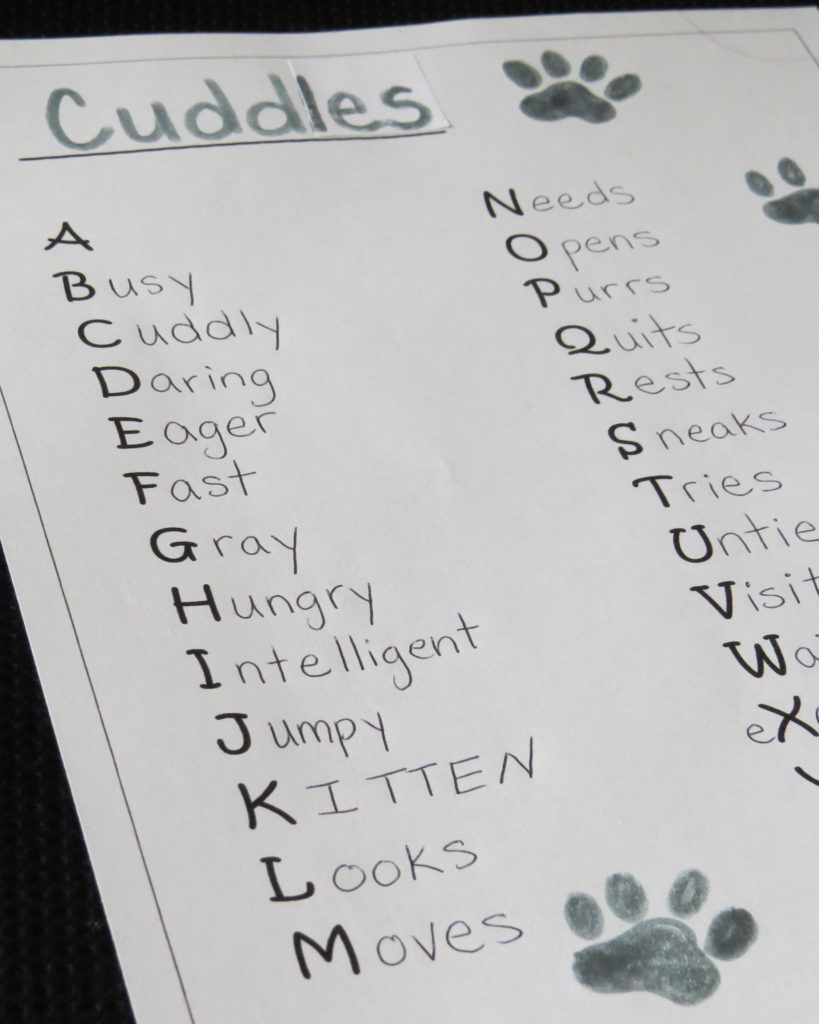 Cuddles
A
Busy
Cuddly
Daring
Eager
Fast
Gray
Hungry
Intelligent
Jumpy
KITTEN
Looks
Moves
Needs
Opens
Purrs
Quits
Rests
Sneaks
Tries